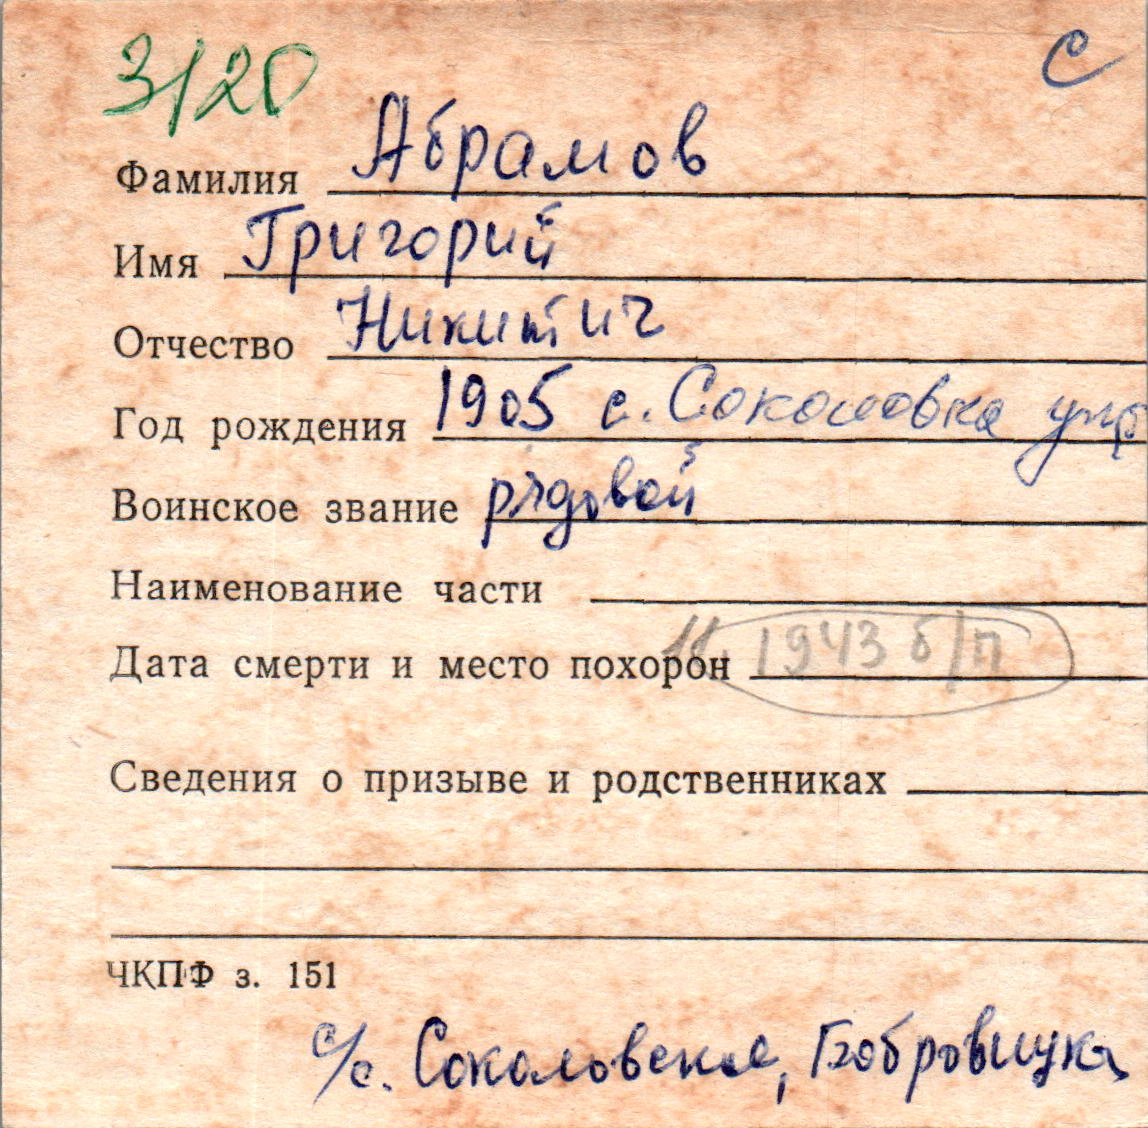 3/20 С
Фамилия Абрамов
Имя Григорий
Отчество Никитич
Год рождения 1905 с. Соколовка укр
Воинское звание рядовой
Наименование части
Дата смерти и место похорон 11. 1943 б/п
Сведения о призыве и родственниках
ЧКПФ з. 151
с/с. Соколовский, Бобровицкий